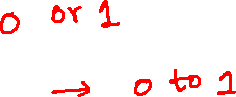 0 or 1
→ 0 to 1